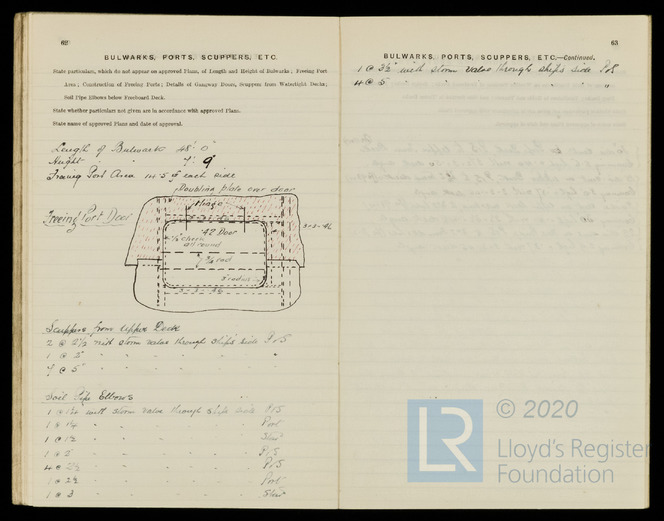 62
BULWARKS, PORTS, SCUPPERS, ETC.
State particulars, which do not appear on approved Plans, of Length and Height of Bulwarks; Freeing Port
Area; Construction of Freeing Ports; Details of Gangway Doors, Scuppers from Watertight Decks;
Soil Pipe Elbows below Freeboard Deck.
State whether particulars not given are in accordance with approved Plans.
State name of approved Plans and date of approval.
Length of Bulwark 48' 0"
Height " 7' 9"
Freeing Port Area 14.5 each side
Doubling plate over door
Hinge
Freeing Port Door
42 Door
all round
Scuppers from Upper Deck
2 @ 2½ with storm valve through ship's side P&S
1 @ 2" " " " " "
7 @ 5" " " " "
Soil Pipe Elbows
1 @ with storm valve through ship's side P/S
1 @ " " " " Port
1 @ 1½ " " " " Star
1 @ 2 " " " " P/S
4 @ 2½ " " " " P/S
1 @ 2½ " " " " Port
1 @ 3 " " " " Star
63
BULWARKS, PORTS, SCUPPERS, ETC.—Continued.
1 @ 3½" with storm valve through ship's side P&S
4 @ 5 " " " "
LR
© 2020
Lloyd's Register
Foundation